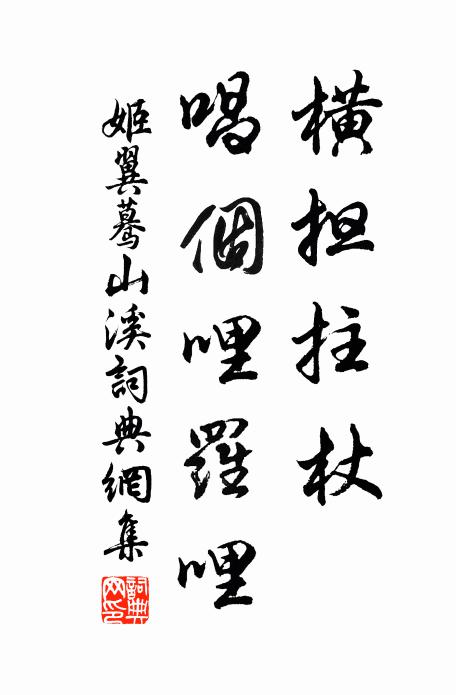 橫担拄杖
唱個哩羅哩
姬翼驀山溪詞典網集
詞典網印